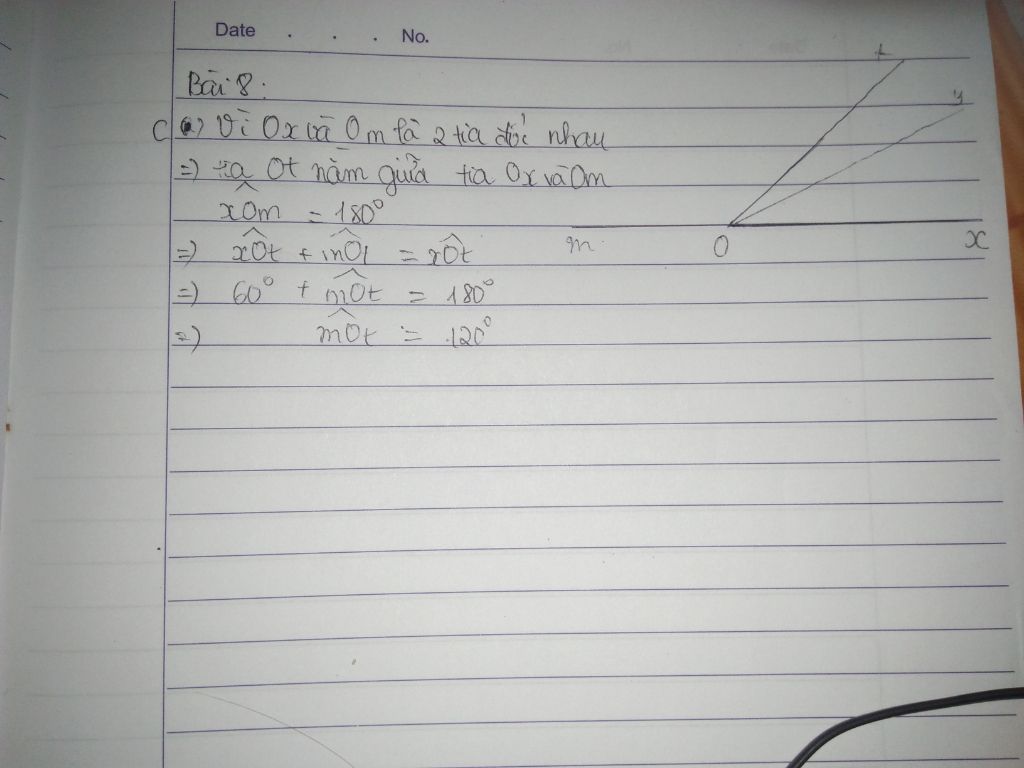 Date . . . No.
Bài 8:
c) Vì Ox và Om là 2 tia đối nhau
=) tia Ot nằm giữa tia Ox và Om
xOm = 180°
=) xOt + mOt = xOt
=) 60° + mOt = 180°
=) mOt = 120°
t
y
m
O
x